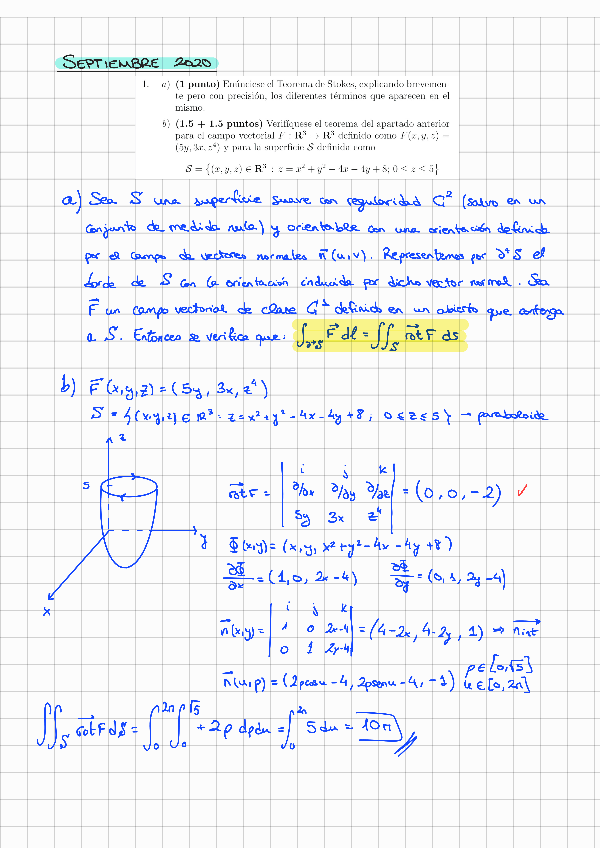 SEPTIEMBRE 2020
1. a) (1 punto) Enúnciese el Teorema de Stokes, explicando brevemen-
te pero con precisión, los diferentes términos que aparecen en el
mismo.
b) (1.5 + 1.5 puntos) Verifíquese el teorema del apartado anterior
para el campo vectorial F : R³ → R³ definido como F(x, y, z) =
(5y, 3x, z⁴) y para la superficie S definida como
S = {(x, y, z) ∈ R³ : z = x² + y² − 4x − 4y + 8; 0 ≤ z ≤ 5}
a) Sea S una superficie suave con regularidad C² (salvo en un
conjunto de medida nula) y orientable con una orientación definida
por el campo de vectores normales n⃗(u,v). Representemos por ∂⁺S el
borde de S con la orientación inducida por dicho vector normal. Sea
F⃗ un campo vectorial de clase C¹ definido en un abierto que contenga
a S. Entonces se verifica que: ∫_{∂⁺S} F⃗ dl = ∬_S rot F ds
b) F⃗(x,y,z) = (5y, 3x, z⁴)
S = {(x,y,z) ∈ R³ : z = x² + y² − 4x − 4y + 8, 0 ≤ z ≤ 5} → paraboloide
z
5
y
x
rot F = | i j k |
| ∂/∂x ∂/∂y ∂/∂z | = (0, 0, −2) ✓
| 5y 3x z⁴ |
Φ(x,y) = (x, y, x² + y² − 4x − 4y + 8)
∂Φ/∂x = (1, 0, 2x − 4) ∂Φ/∂y = (0, 1, 2y − 4)
n⃗(x,y) = | i j k |
| 1 0 2x−4 | = (4 − 2x, 4 − 2y, 1) → n⃗int
| 0 1 2y−4 |
n⃗(u,ρ) = (2ρcosu − 4, 2ρsenu − 4, −1) ρ ∈ [0, √5]
u ∈ [0, 2π]
∬_S rot F dS = ∫₀^{2π} ∫₀^{√5} + 2ρ dρdu = ∫₀^{2π} 5 du = 10π